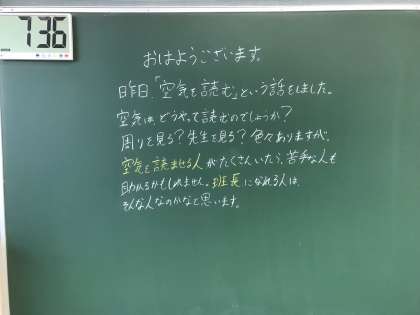 736
おはようございます。
昨日、「空気を読む」という話をしました。
空気は、どうやって読むのでしょうか?
周りを見る?先生を見る?色々ありますが、
空気を読ませる人がたくさんいたら、苦手な人も
助かるかもしれません。班長になれる人は、
そんな人なのかなと思います。